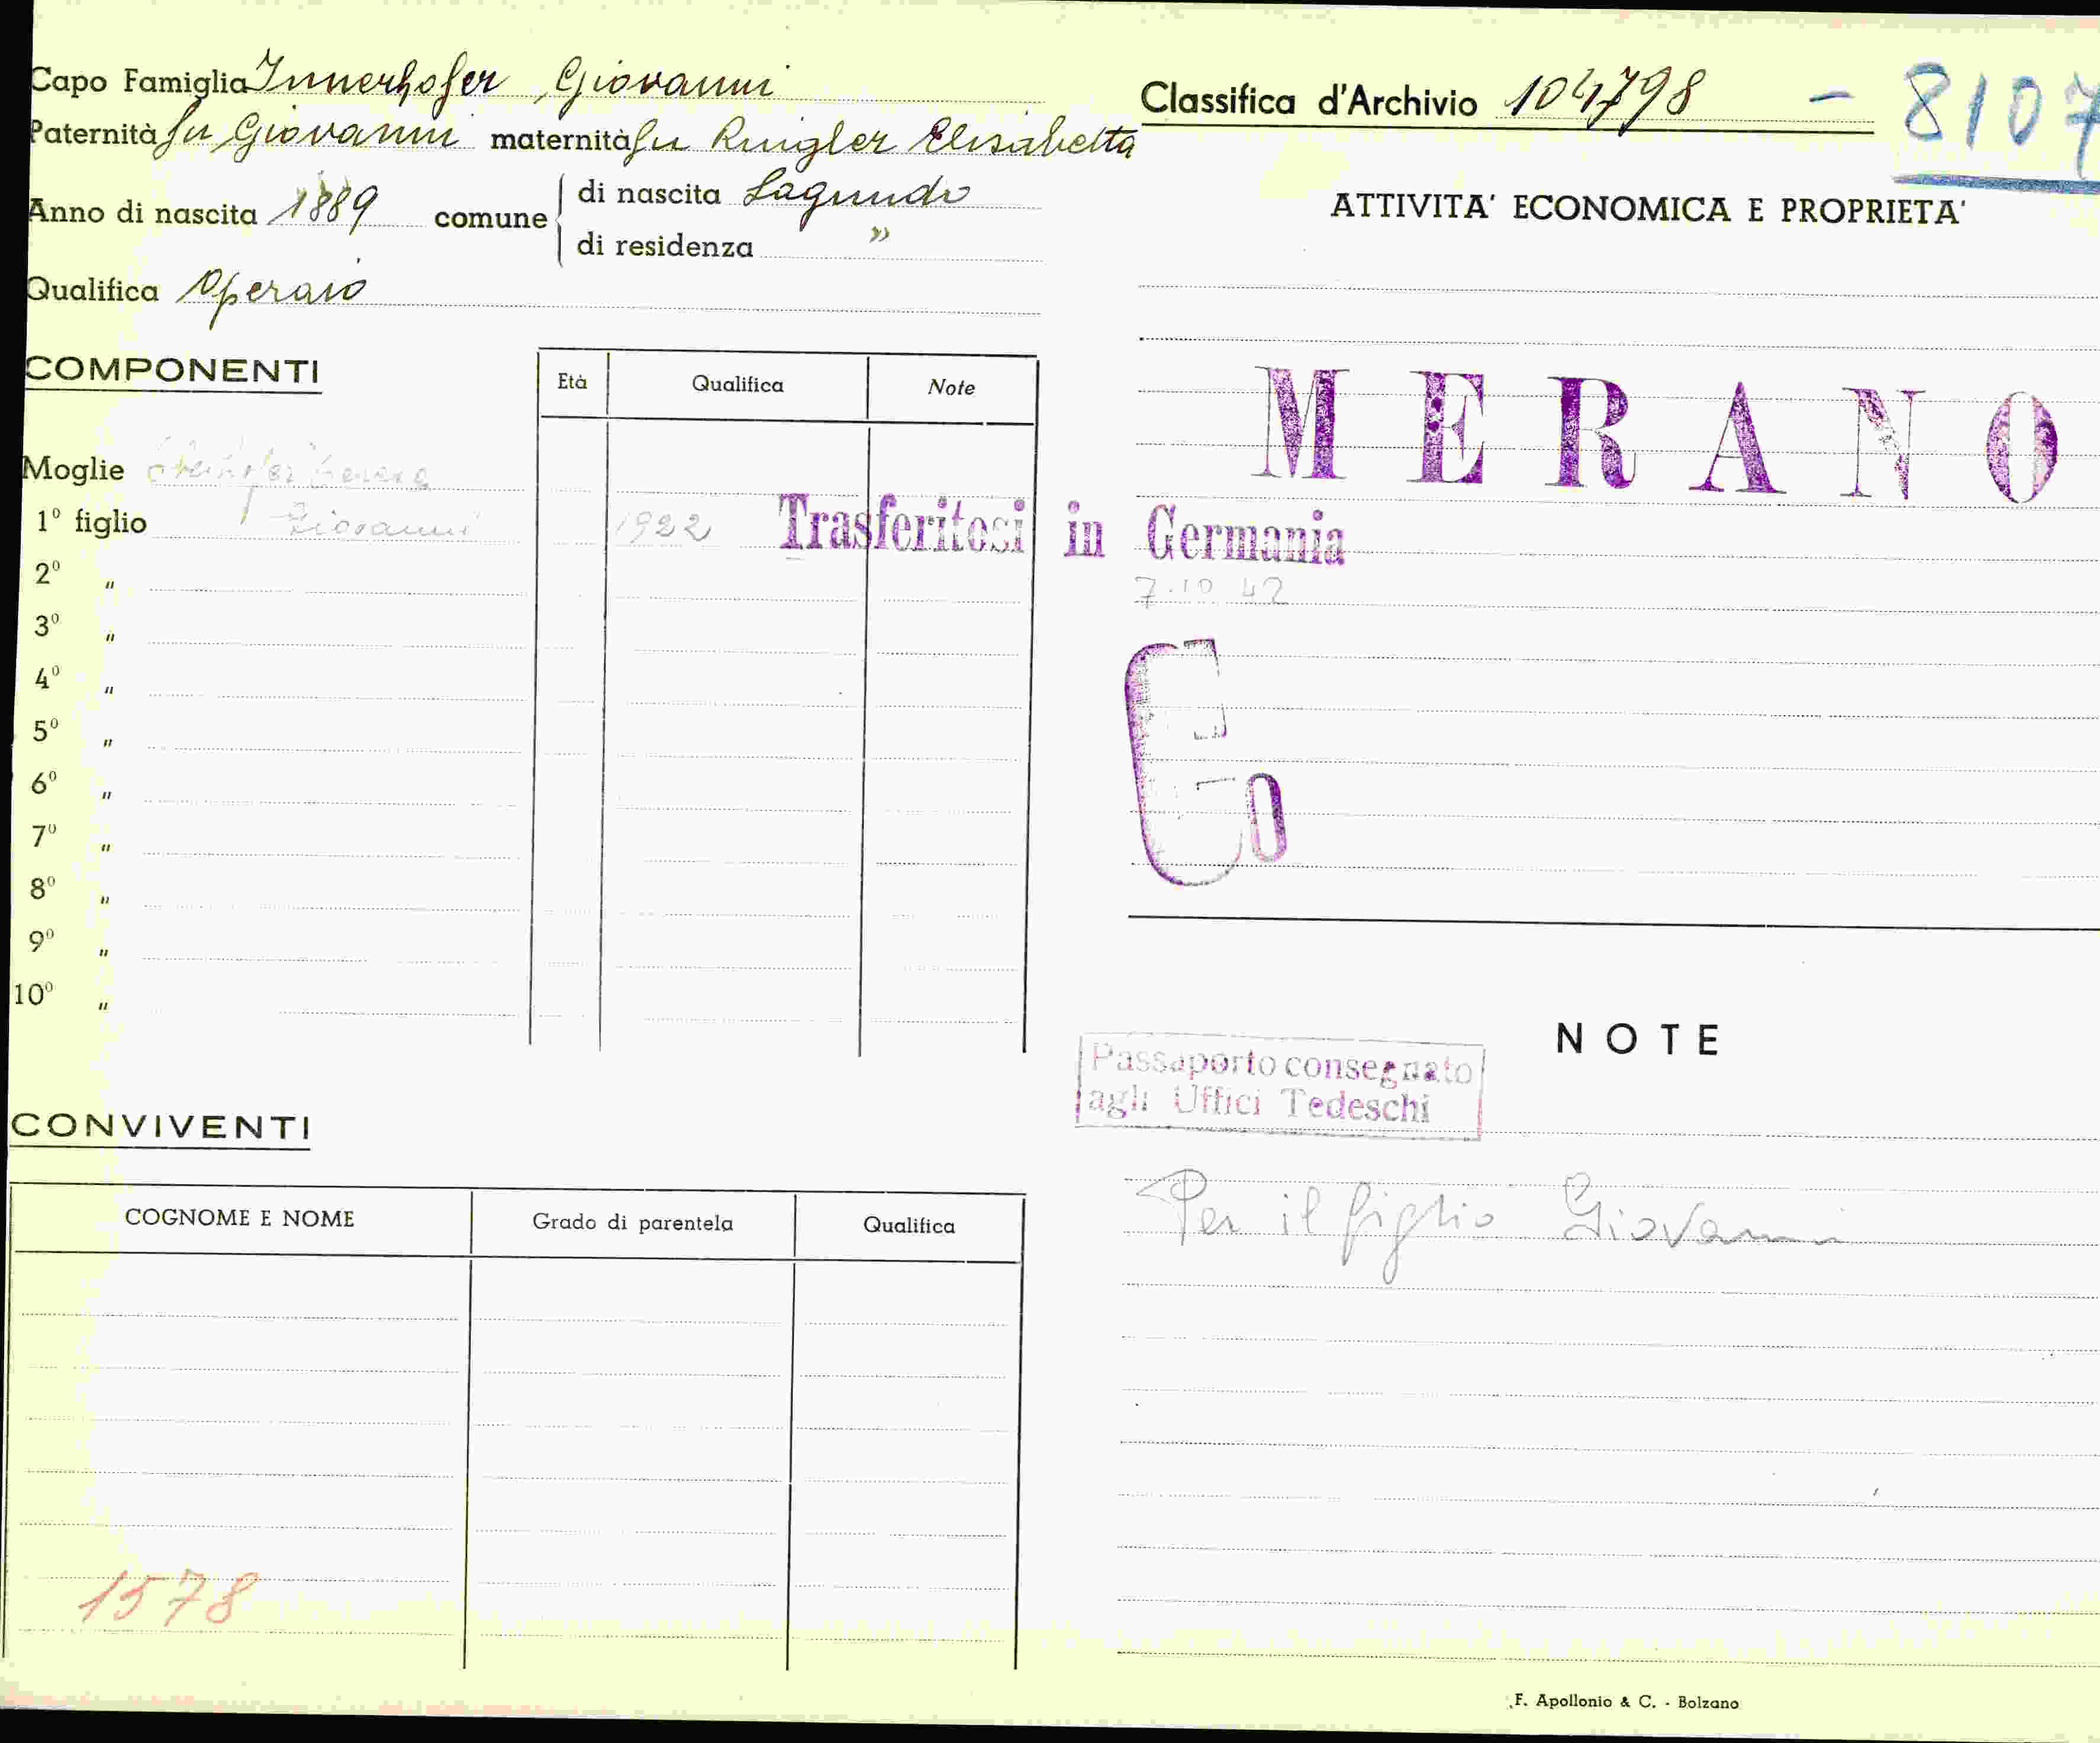 Capo Famiglia Innerhofer, Giovanni
Paternità fu Giovanni maternità fu Ringler Elisabetta
Anno di nascita 1889 comune
di nascita Lagundo
di residenza "
Qualifica Operaio
COMPONENTI
Età Qualifica Note
Moglie
1º figlio Giovanni 1922
2º "
3º "
4º "
5º "
6º "
7º "
8º "
9º "
10º "
CONVIVENTI
COGNOME E NOME Grado di parentela Qualifica
1578
Classifica d'Archivio 104798 - 8107
ATTIVITA' ECONOMICA E PROPRIETA'
MERANO
Trasferitosi in Germania
7.10 42
NOTE
Passaporto consegnato
agli Uffici Tedeschi
Per il figlio Giovanni
F. Apollonio & C. - Bolzano